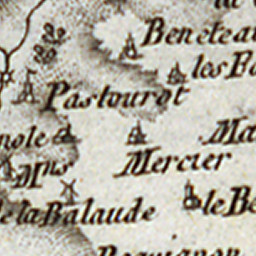 Beneteau
les Bo
Pastourot
nole
Ma
Mns
Mercier
de la Balaude
le Be